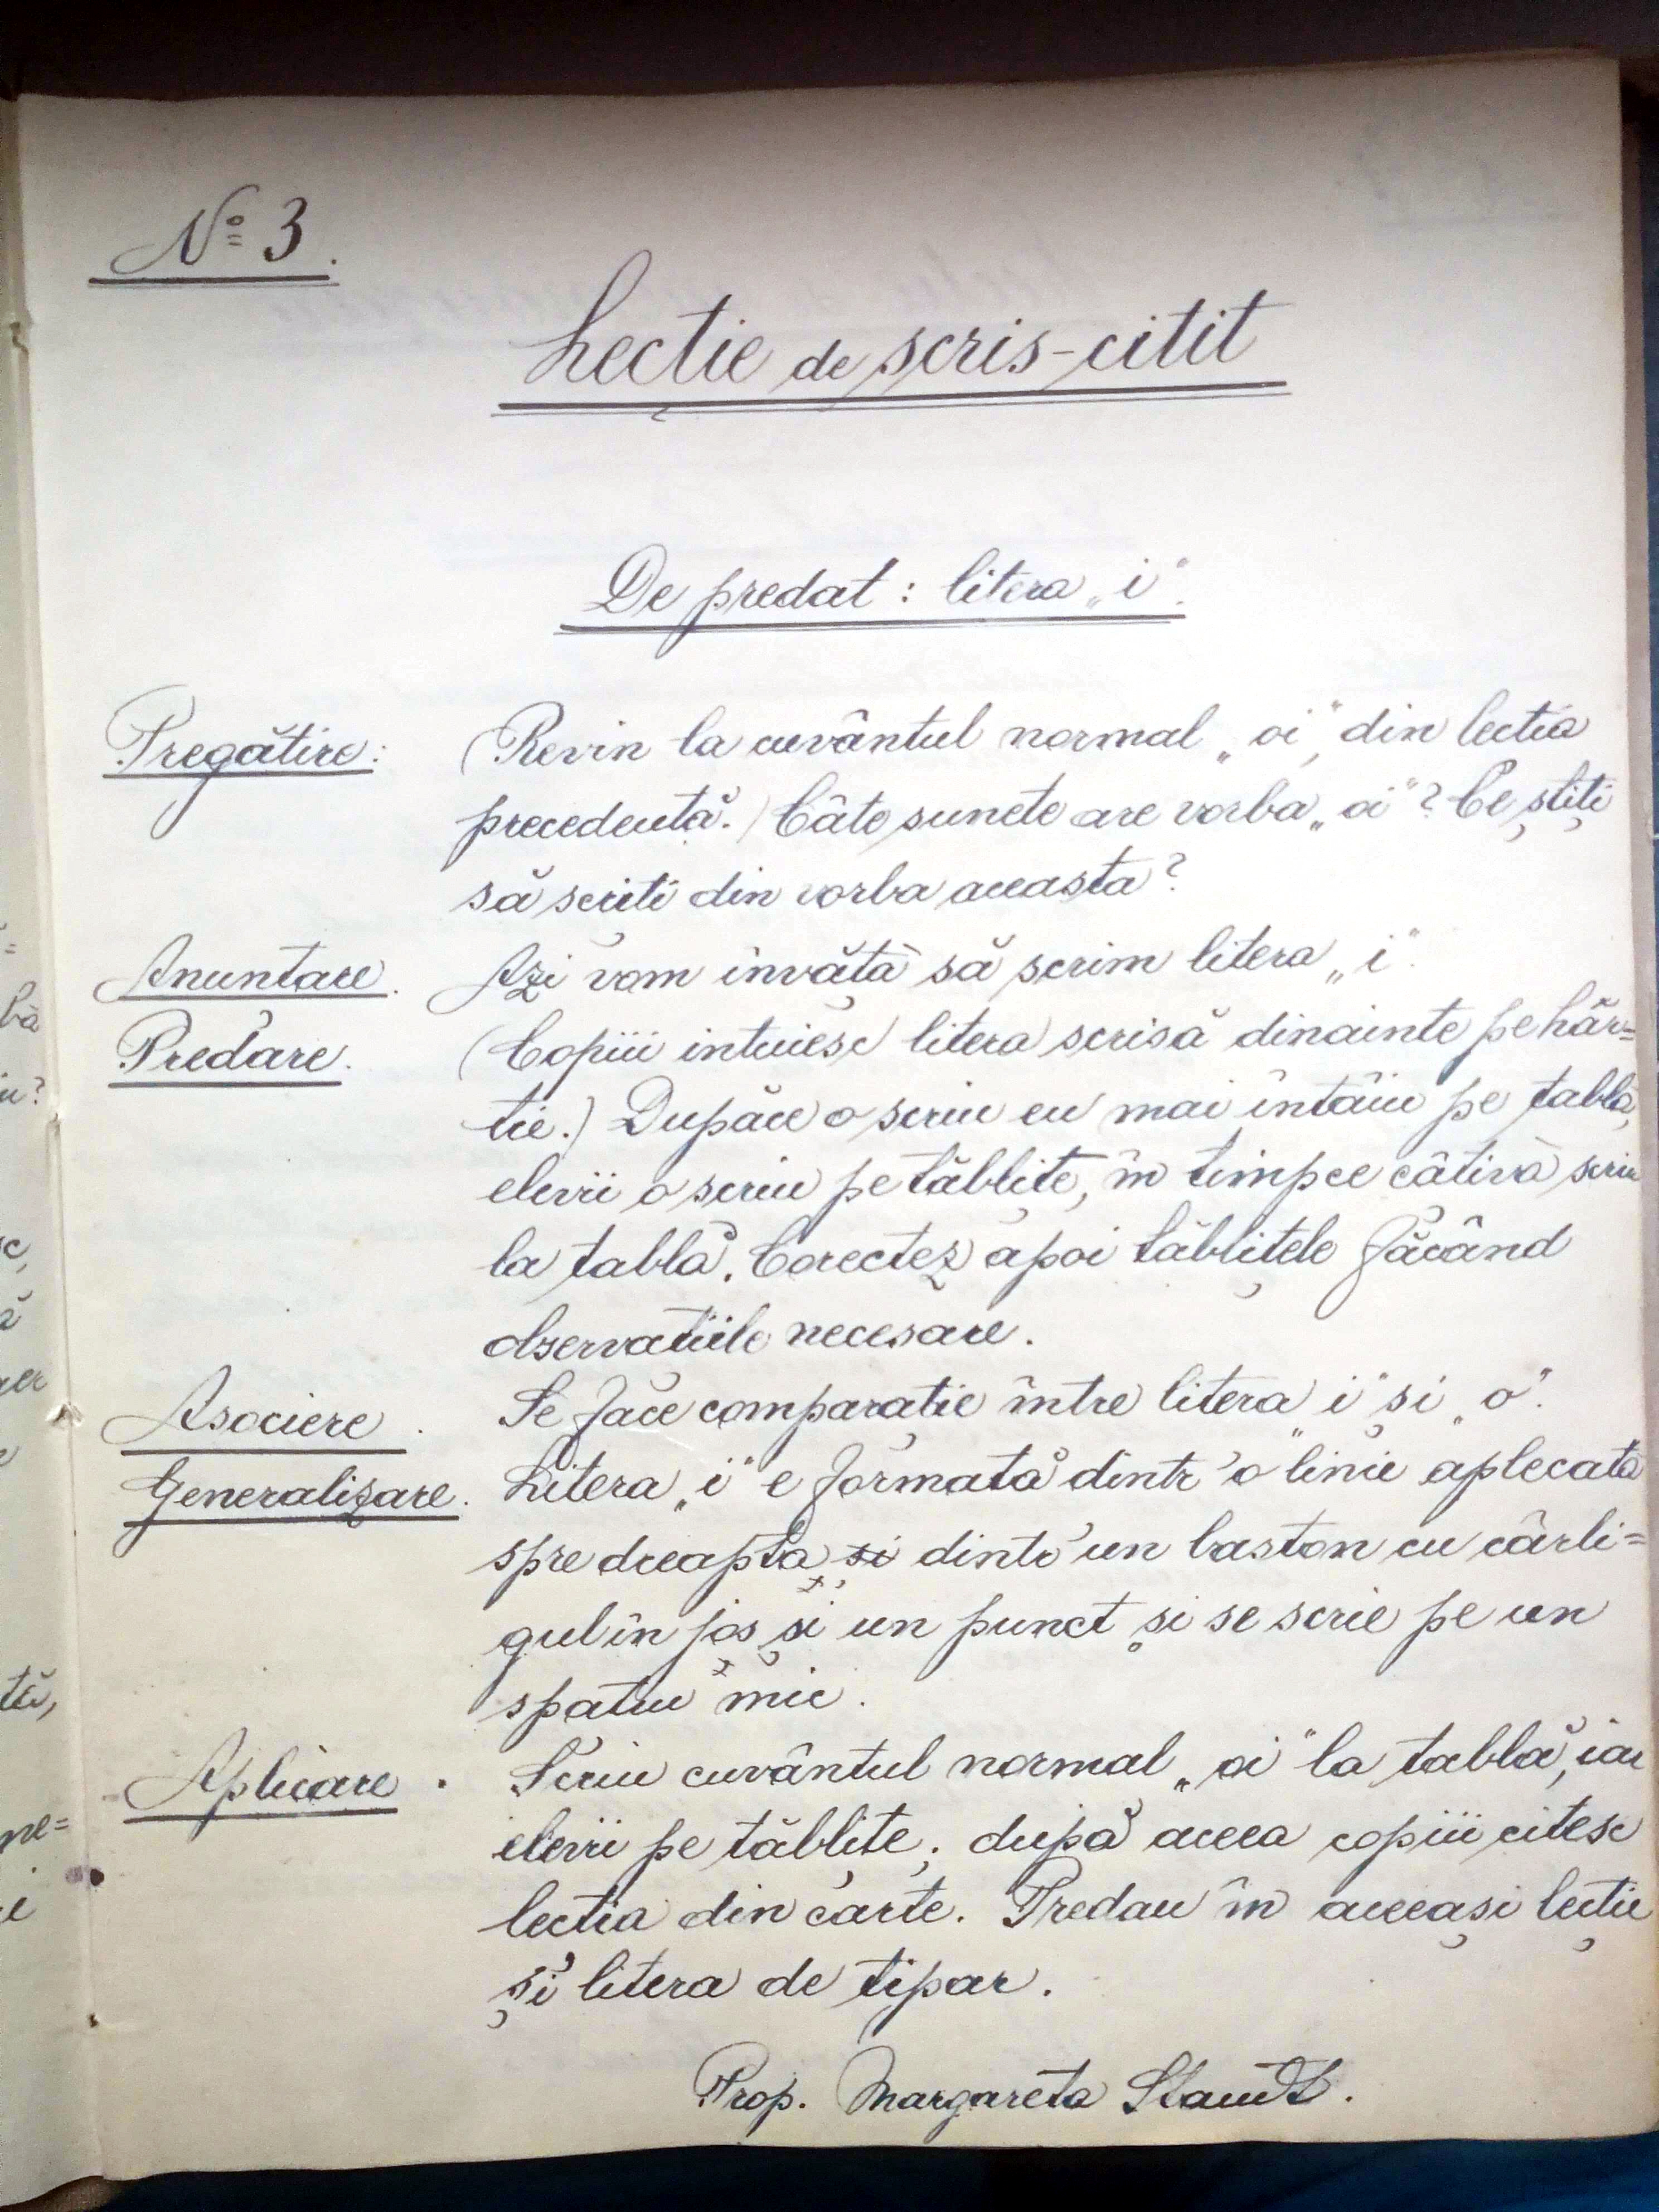 No 3.
Lecție de scris-citit
De predat: litera „i".
Pregătire: (Revin la cuvântul normal „oi" din lecția
precedentă.) Câte sunete are vorba „oi"? Ce știți
să scriți din vorba aceasta?
Anunțare. Azi vom învăță să scrim litera „i".
Predare. (Copiii intuiesc litera scrisă dinainte pe hâr=
tie.) Dupăce o scriu eu mai întâiu pe tablă,
elevii o scriu pe tăblițe, în timpce câtiva scriu
la tablă. Corectez apoi tăblițele făcând
observațiile necesare.
Asociere. Se face comparație între litera „i" și „o".
Generalizare. Litera „i" e formată dintr'o linie aplecată
spre dreapta si dintr'un baston cu cârli=
gul în jos și un punct și se scrie pe un
spațiu mic.
Aplicare. Scriu cuvântul normal „oi" la tablă, iar
elevii pe tăblițe; după aceea copiii citesc
lecția din carte. Predau în aceeași lecție
și litera de tipar.
Prop. Margareta